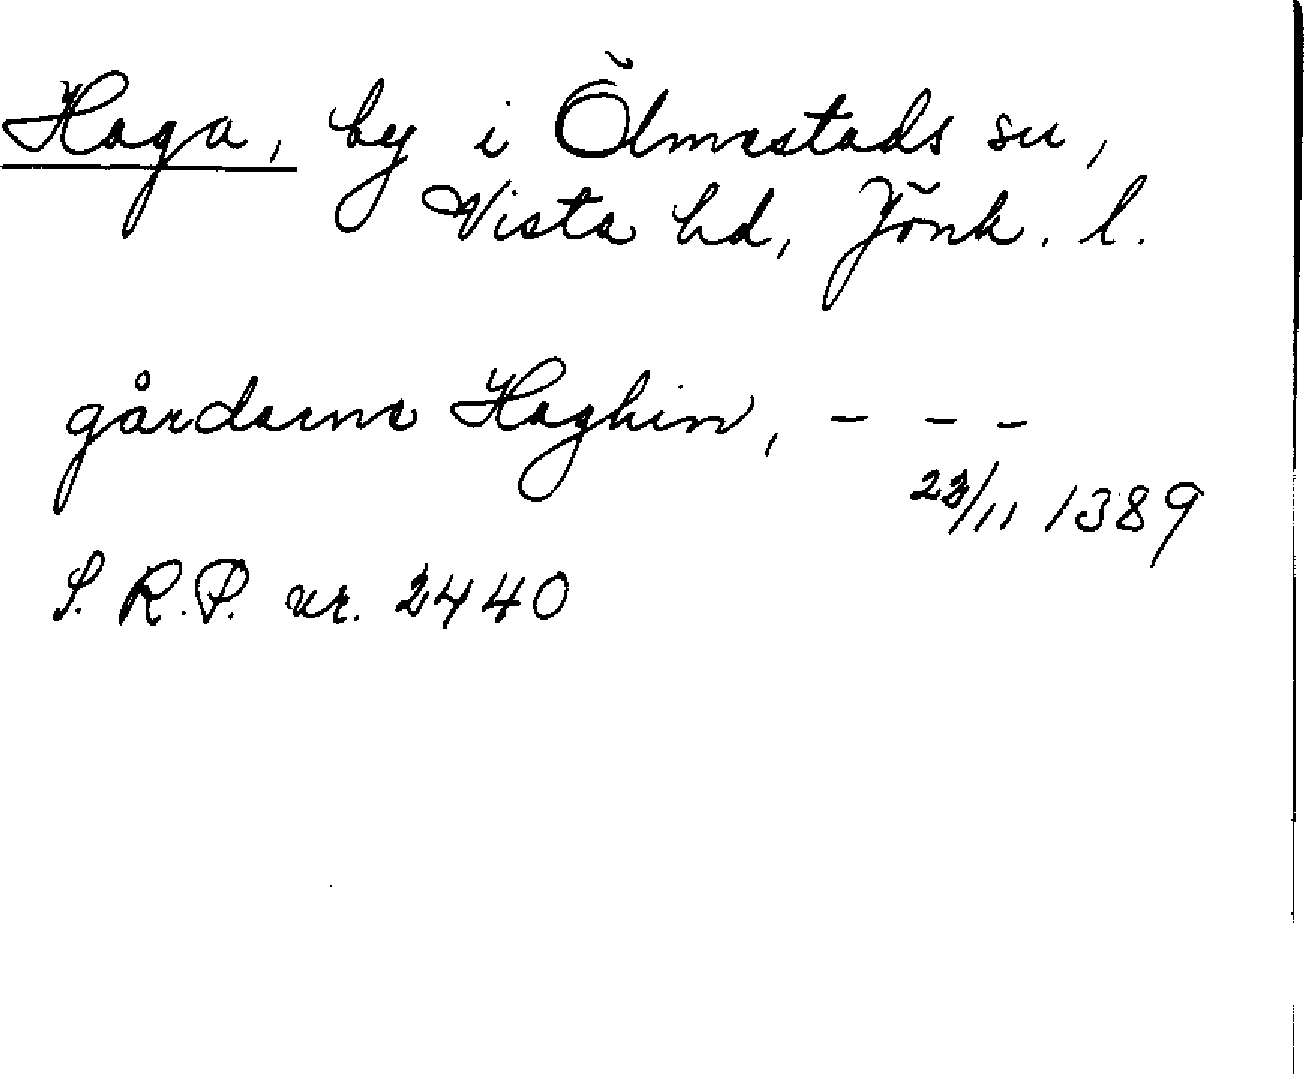 Haga, by i Ölmstads sn,
Vista hd, Jönk. l.
gårdarne Haghin, - - -
23/11 1389
S. R.P. nr. 2440